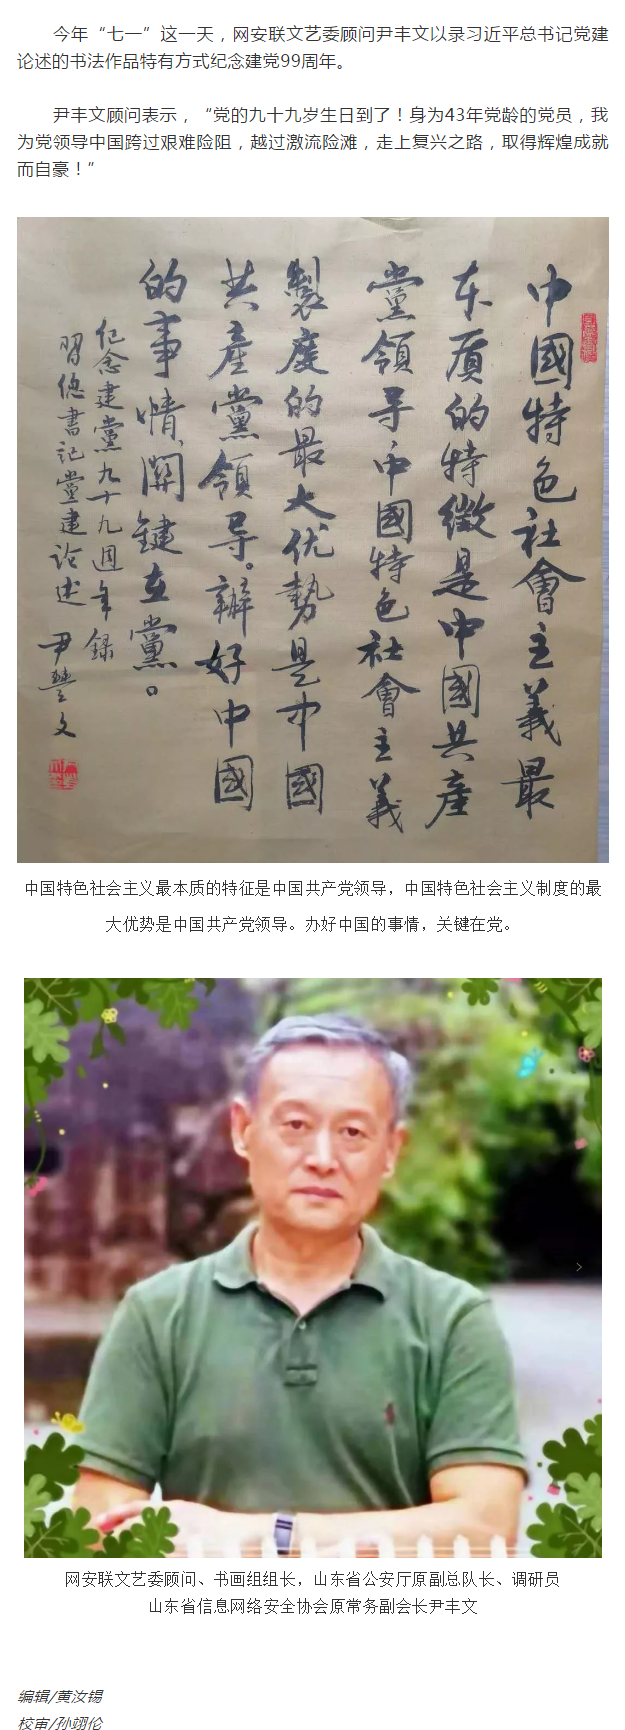 今年“七一”这一天，网安联文艺委顾问尹丰文以录习近平总书记党建
论述的书法作品特有方式纪念建党99周年。
尹丰文顾问表示，“党的九十九岁生日到了！身为43年党龄的党员，我
为党领导中国跨过艰难险阻，越过激流险滩，走上复兴之路，取得辉煌成就
而自豪！”
中國特色社會主義最
本质的特徵是中國共產
黨領导中國特色社會主義
製度的最大优勢是中國
共產黨領导。辦好中國
的事情，関鍵在黨。
纪念建黨九十九週年録
習總書记黨建论述 尹豐文
中国特色社会主义最本质的特征是中国共产党领导，中国特色社会主义制度的最
大优势是中国共产党领导。办好中国的事情，关键在党。
网安联文艺委顾问、书画组组长，山东省公安厅原副总队长、调研员
山东省信息网络安全协会原常务副会长尹丰文
编辑/黄汝锡
校审/孙翊伦